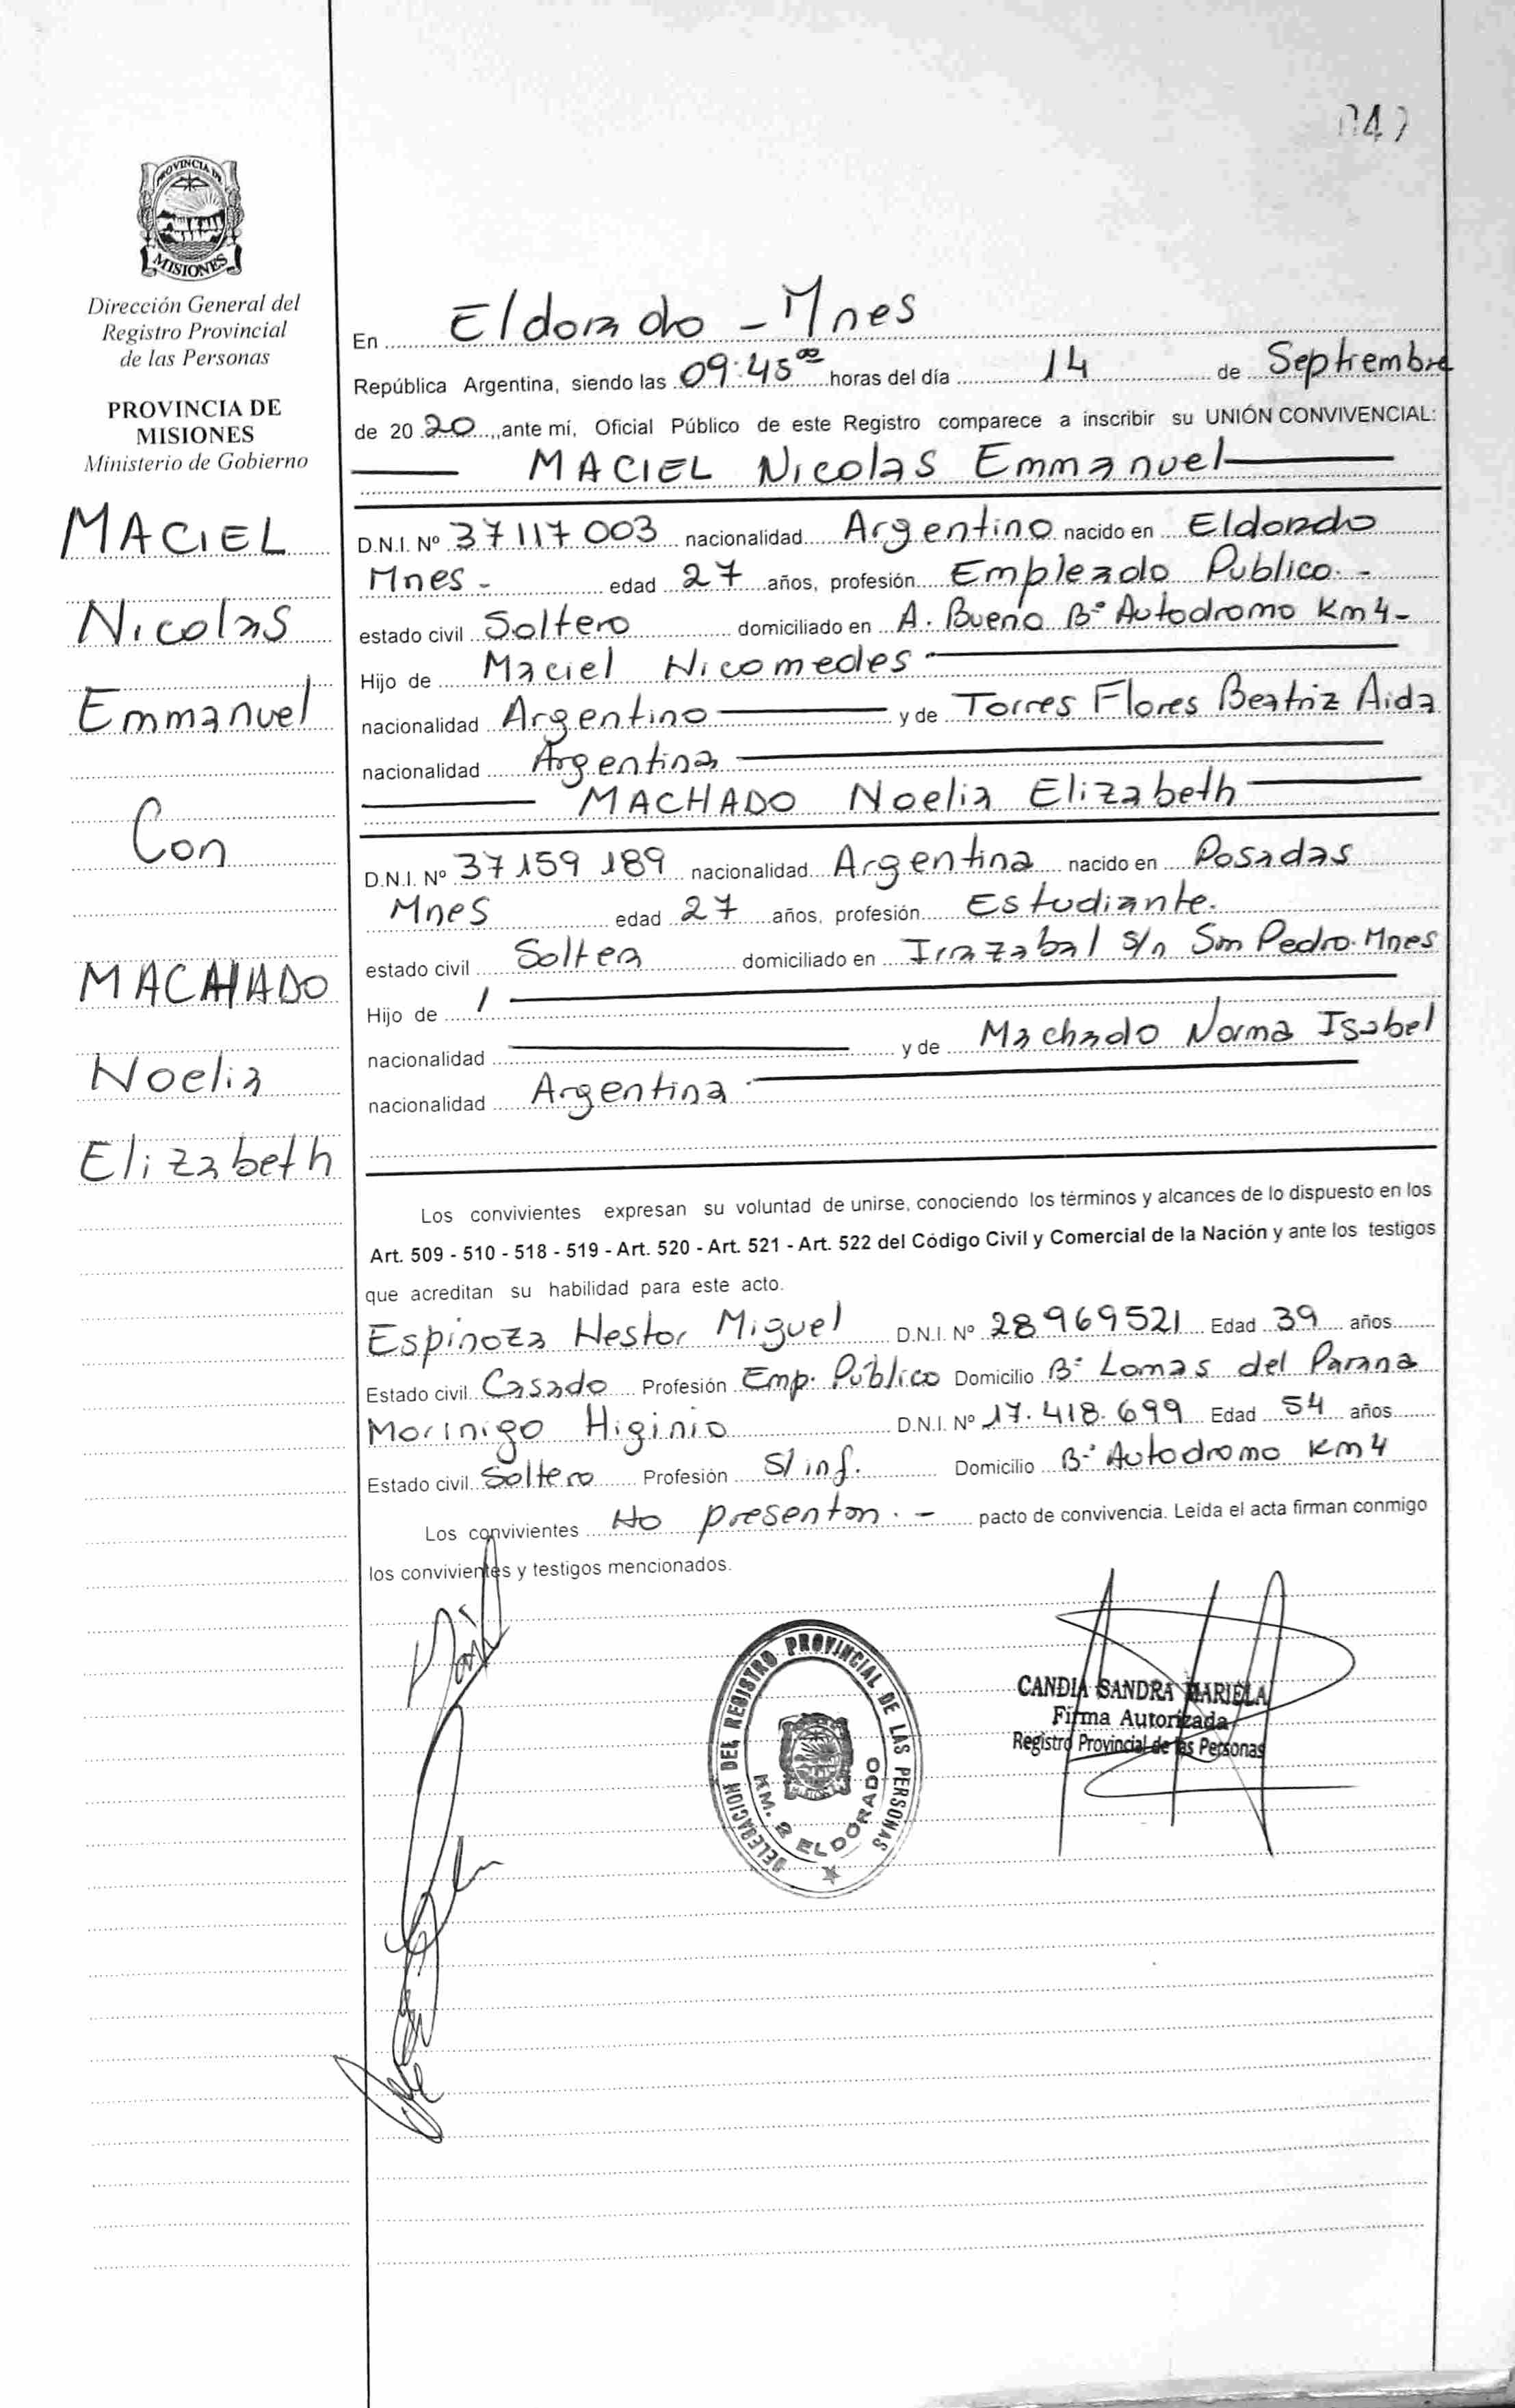 047
PROVINCIA DE
MISIONES
Dirección General del
Registro Provincial
de las Personas
PROVINCIA DE
MISIONES
Ministerio de Gobierno
MACIEL
Nicolas
Emmanuel
Con
MACHADO
Noelia
Elizabeth
En Eldorado - Mnes
República Argentina, siendo las 09:45 horas del día 14 de Septiembre
de 20 20, ante mí, Oficial Público de este Registro comparece a inscribir su UNIÓN CONVIVENCIAL:
MACIEL Nicolas Emmanuel
D.N.I. Nº 37117003 nacionalidad Argentino nacido en Eldorado
Mnes - edad 27 años, profesión Empleado Publico. -
estado civil Soltero domiciliado en A. Bueno Bº Autodromo Km 4 -
Hijo de Maciel Nicomedes
nacionalidad Argentino y de Torres Flores Beatriz Aida
nacionalidad Argentina
MACHADO Noelia Elizabeth
D.N.I. Nº 37 159 189 nacionalidad Argentina nacido en Posadas
Mnes edad 27 años, profesión Estudiante.
estado civil Soltera domiciliado en Irazabal s/n San Pedro. Mnes
Hijo de /
nacionalidad y de Machado Norma Isabel
nacionalidad Argentina
Los convivientes expresan su voluntad de unirse, conociendo los términos y alcances de lo dispuesto en los
Art. 509 - 510 - 518 - 519 - Art. 520 - Art. 521 - Art. 522 del Código Civil y Comercial de la Nación y ante los testigos
que acreditan su habilidad para este acto.
Espinoza Hestor Miguel D.N.I. Nº 28969521 Edad 39 años
Estado civil Casado Profesión Emp. Publico Domicilio Bº Lomas del Parana
Morinigo Higinio D.N.I. Nº 17.418.699 Edad 54 años
Estado civil Soltero Profesión S/ inf. Domicilio Bº Autodromo Km 4
Los convivientes No presentan. - pacto de convivencia. Leída el acta firman conmigo
los convivientes y testigos mencionados.
DELEGACION DEL REGISTRO PROVINCIAL DE LAS PERSONAS
KM. 2 ELDORADO
CANDIA SANDRA MARIELA
Firma Autorizada
Registro Provincial de las Personas